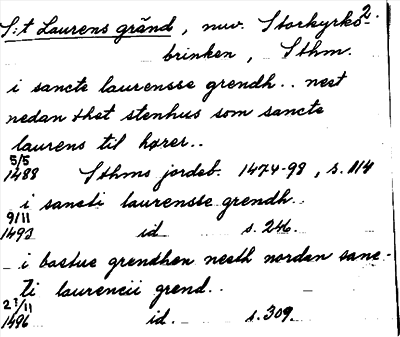 2.
S:t Laurens gränd, nuv. Storkyrko-
brinken, Sthm.
i sancte laurensse grendh.. nest
nedan thet stenhus som sancte
laurens til hører..
5/5
1488 Sthms jordeb. 1474-98, s. 114
i sancti laurensse grendh..
9/11
1493 id s. 246.
i bastue grendhen nesth nordan sanc-
ti laurencii grend..
/11
1496 id. s. 309.